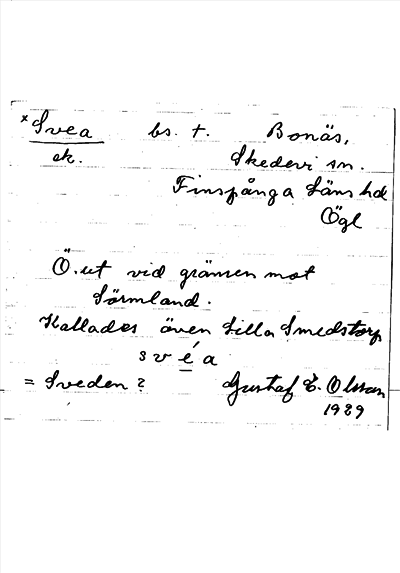 ×Svea bs. t. Bonäs,
ek. Skedevi sn.
Finspånga läns hd
Ögl
Ö. ut vid gränsen mot
Sörmland.
Kallades även Lilla Smedstorp
svéa
= Sveden? Gustaf E. Olsson
1929